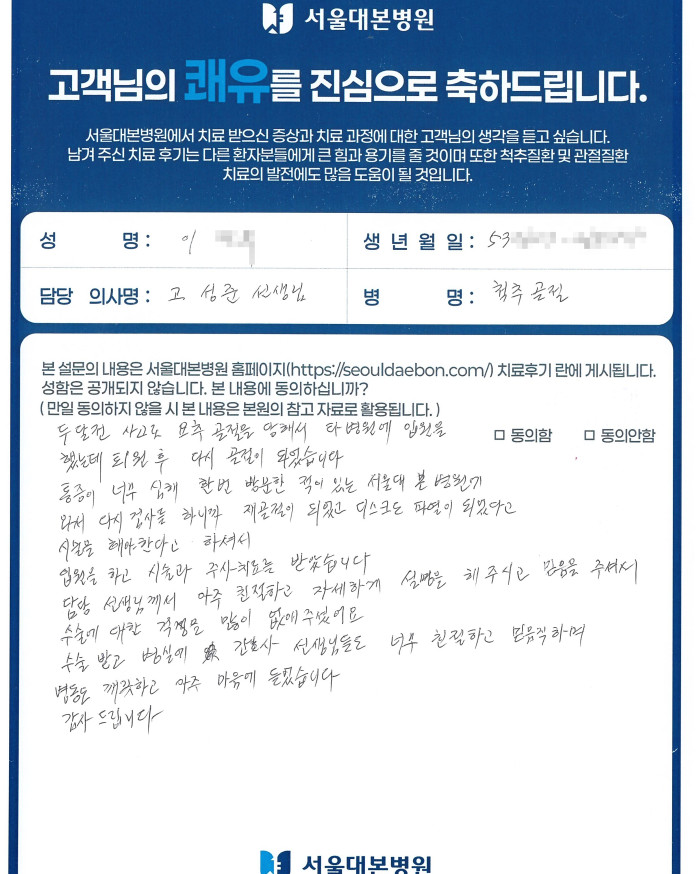 서울대본병원
고객님의 쾌유를 진심으로 축하드립니다.
서울대본병원에서 치료 받으신 증상과 치료 과정에 대한 고객님의 생각을 듣고 싶습니다.
남겨 주신 치료 후기는 다른 환자분들에게 큰 힘과 용기를 줄 것이며 또한 척추질환 및 관절질환
치료의 발전에도 많음 도움이 될 것입니다.
성 명 : 이
생 년 월 일 : 53
담당 의사명 : 고 성준 선생님
병 명 : 척추 골절
본 설문의 내용은 서울대본병원 홈페이지(https://seouldaebon.com/) 치료후기 란에 게시됩니다.
성함은 공개되지 않습니다. 본 내용에 동의하십니까?
( 만일 동의하지 않을 시 본 내용은 본원의 참고 자료로 활용됩니다. )
□ 동의함 □ 동의안함
두달전 사고로 요추 골절을 당해서 타병원에 입원을
했는데 퇴원 후 다시 골절이 되었습니다
통증이 너무 심해 한번 방문한 적이 있는 서울대 본 병원에
와서 다시 검사를 하니까 재골절이 되었고 디스크도 파열이 되었다고
시술을 해야한다고 하셔서
입원을 하고 시술과 주사치료를 받았습니다
담당 선생님께서 아주 친절하고 자세하게 설명을 해 주시고 믿음을 주셔서
수술에 대한 걱정을 많이 없애주셨어요
수술 받고 병실에 간호사 선생님들도 너무 친절하고 믿음직하며
병동도 깨끗하고 아주 마음에 들었습니다
감사 드립니다
서울대본병원